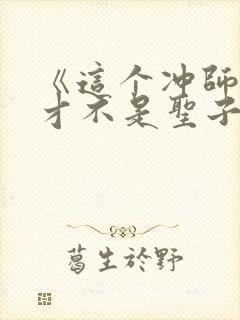 《這个冲師
才不是聖子
葛生於野